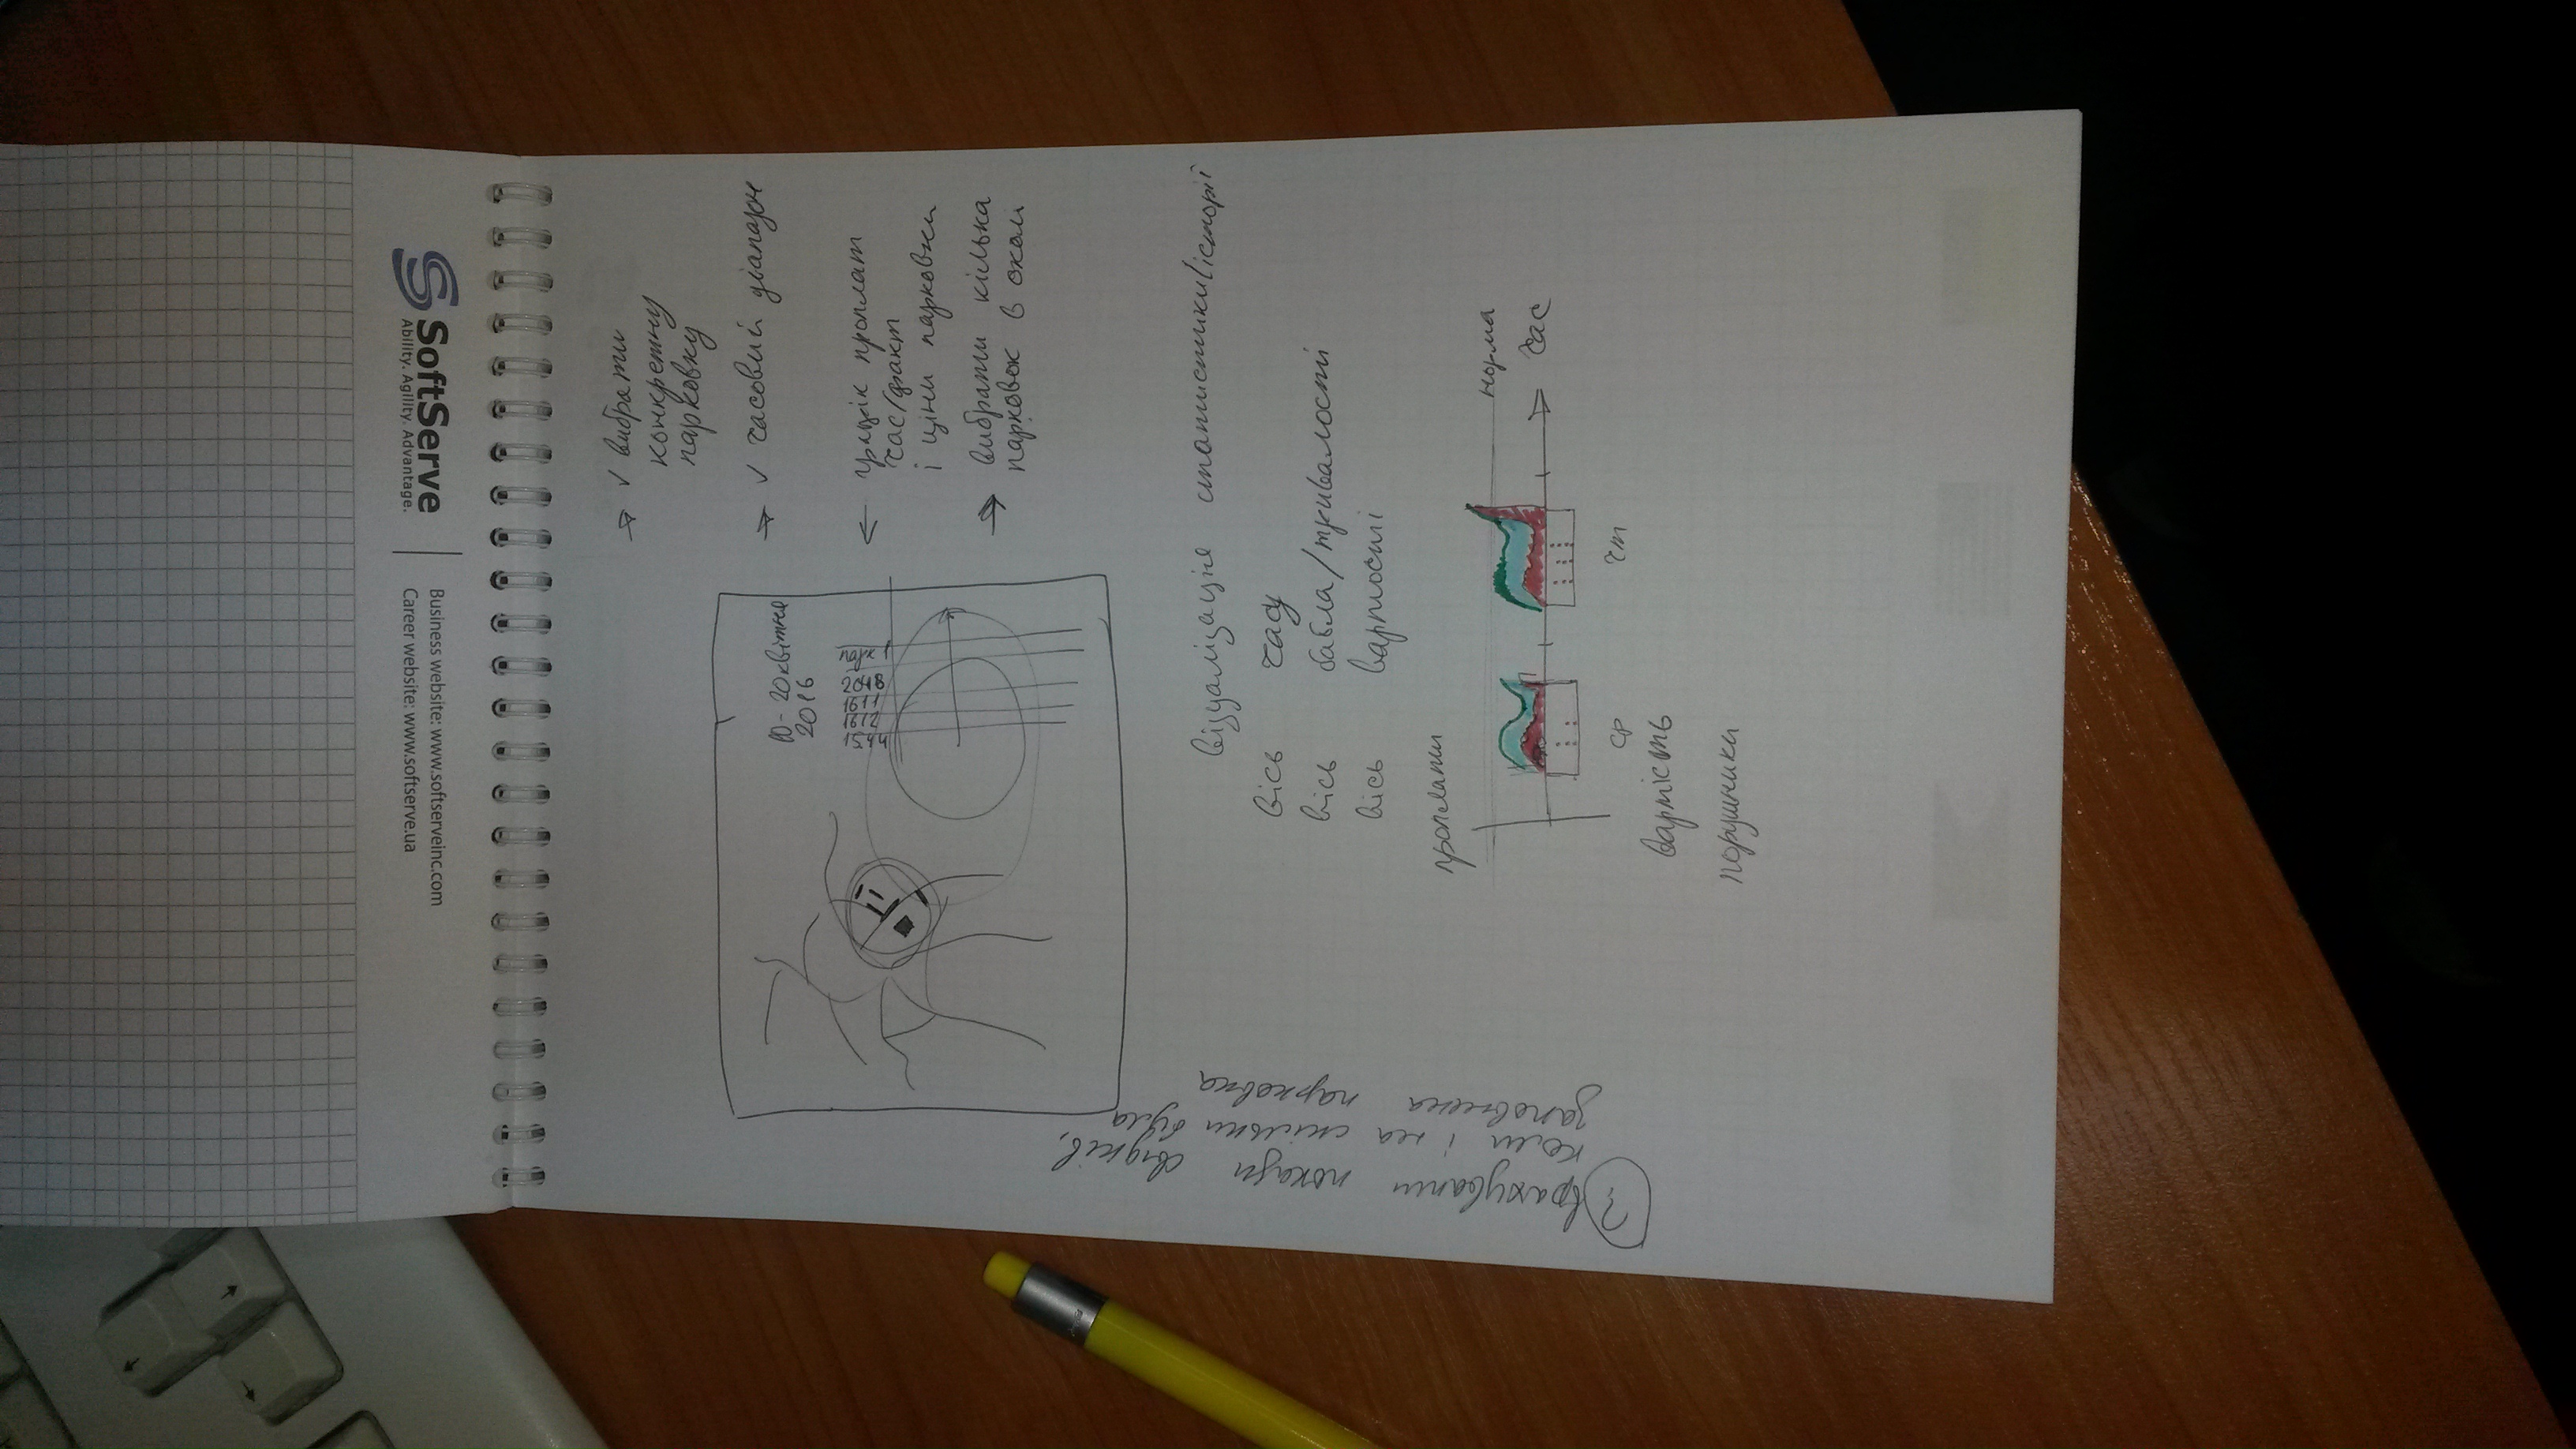 SoftServe
Ability. Agility. Advantage.
Business website: www.softserveinc.com
Career website: www.softserve.ua
✓ вибрати
конкретну
парковку
✓ часовий діапазон
графік проплат
час/факт
і ціни парковки
вибрати кілька
парковок в околі
10-20 квітня
2016
парк 1
2048
1611
1612
1544
візуалізація статистики/історії
вісь часу
вісь бабла/тривалості
вісь вартості
проплати
норма
час
ср
чт
вартість
порушники
? врахувати покази свідків,
коли і на скільки була
заповнена парковка